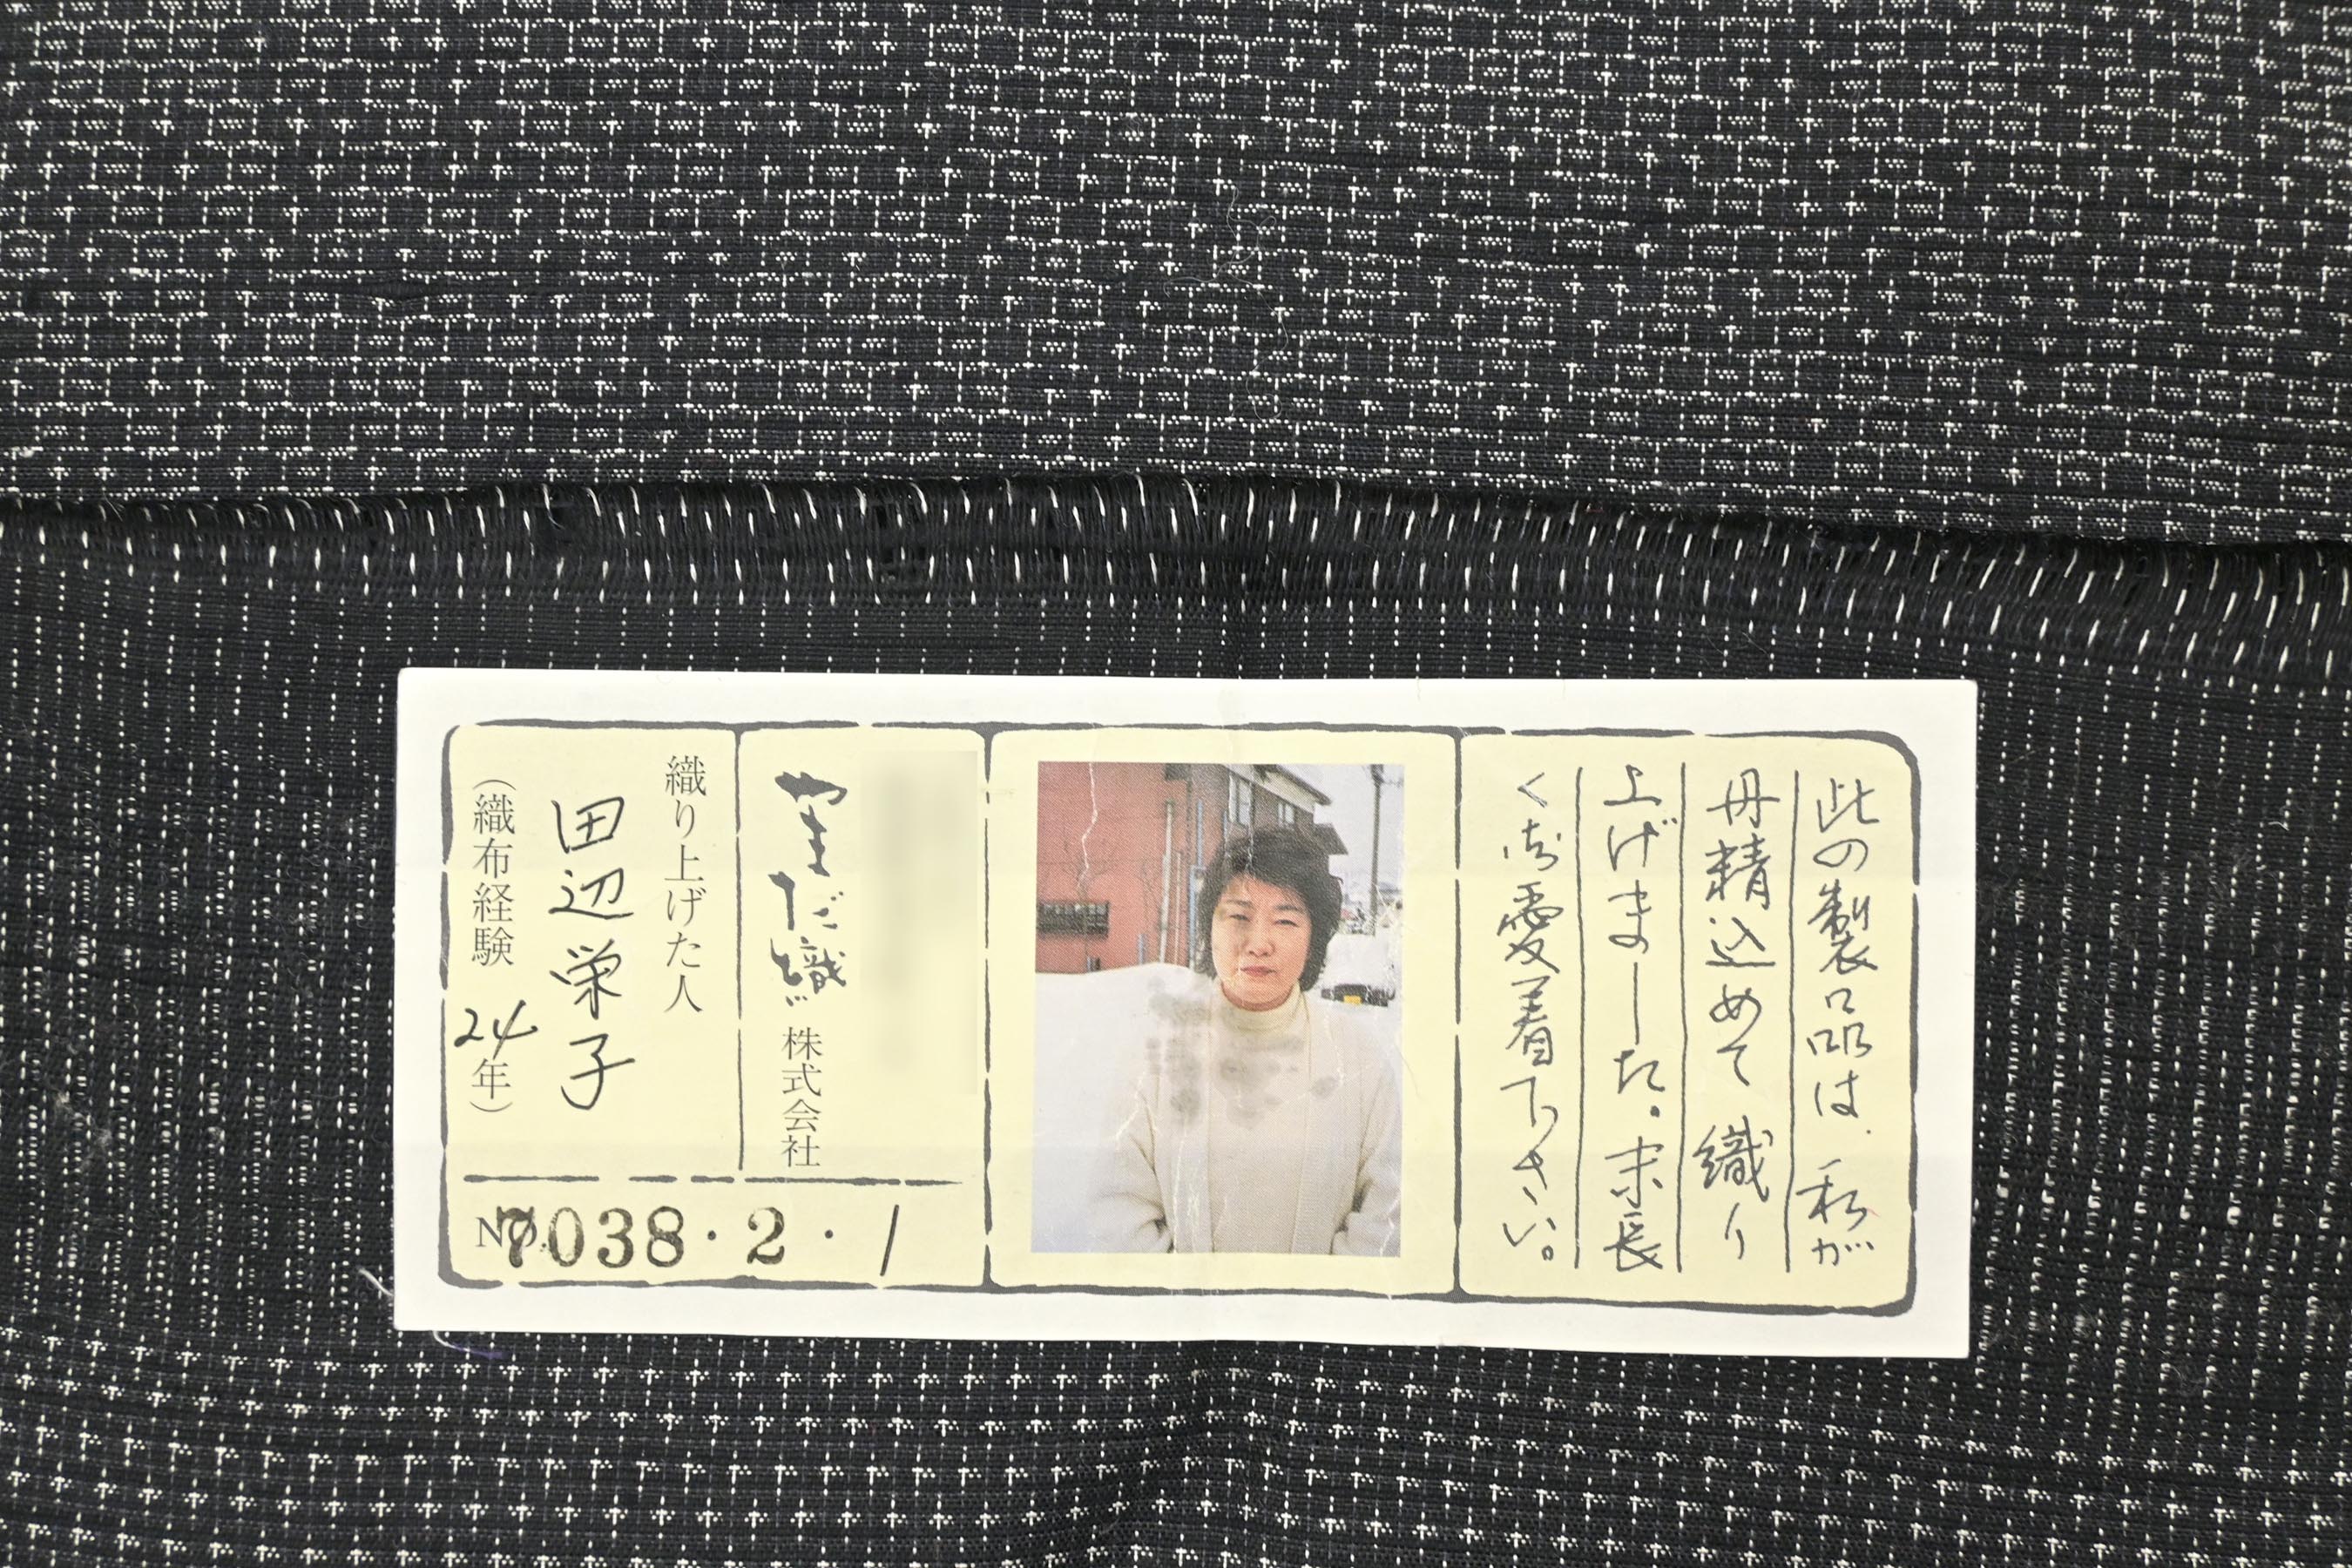 此の製品は、私が
丹精込めて織り
上げました。末長
く御愛着下さい。
やまだ織
株式会社
織り上げた人
田辺栄子
(織布経験 24年)
No.7038・2・1